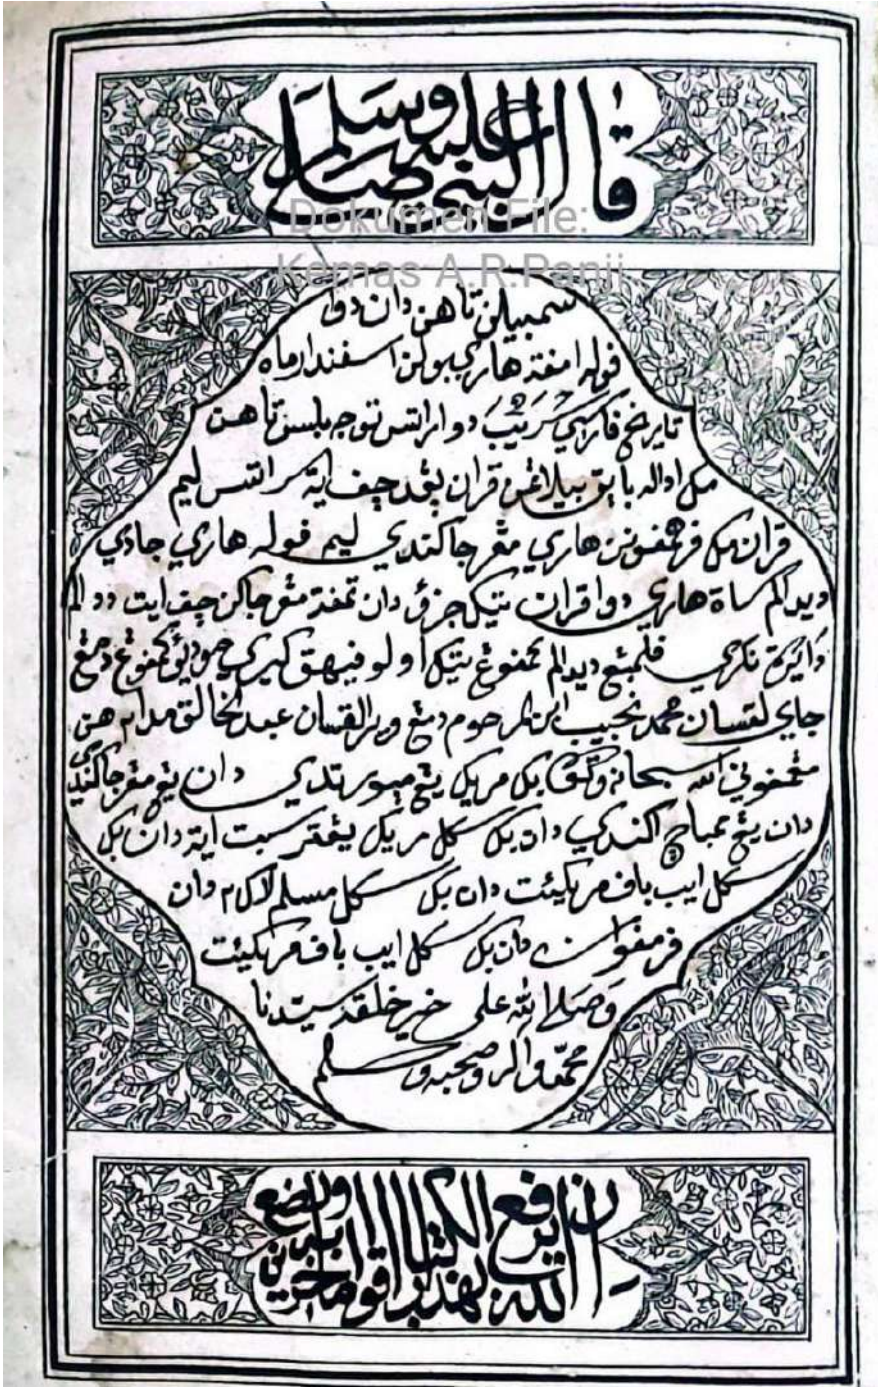 قال النبي صلى الله عليه وسلم
Dokumen File:
Kemas A.R.Panji
سمبيلن تاهن دان دوا
فوله امفة هاري بولن اسفندارماه
تاريخ فارسي سريب دوا راتس توجه بلس تاهن
مك اداله باپق بيلاڠن قران يڠدچف ايت سراتس ليم
قران مك فرهمفونن هاري مڠرجاكندي ليم فوله هاري جادي
ديدالم ساة هاري دوا قران تيݢ جزؤ دان تمفة مڠرجاكن چف ايت ددالم
نݢري فلمبڠ ديدالم كمفوڠ تيݢ اولو فيهق كيري مودیق كمفوڠ دمڠ
جاي لقسان محمد نجيب ابن المرحوم دمڠ ويرا لقسان عبد الخالق مدام هن
مڠمفوني الله سبحانه وتعالى بݢ مريك يڠ مپورتدي دان يڠ مڠرجاكندي
دان يڠ ممباچ اكندي دان بݢ سݢل مريك يڠترسبت ايت دان بݢ
سݢل ايب باف مريكئت دان بݢ سݢل مسلم لاك٢ دان
فرمفوان دان بݢ سݢل ايب باف مريكئت
وصلى الله على خير خلقه سيدنا
محمد واله وصحبه وسلم
إن الله يرفع بهذا الكتاب اقواما ويضع به اخرين